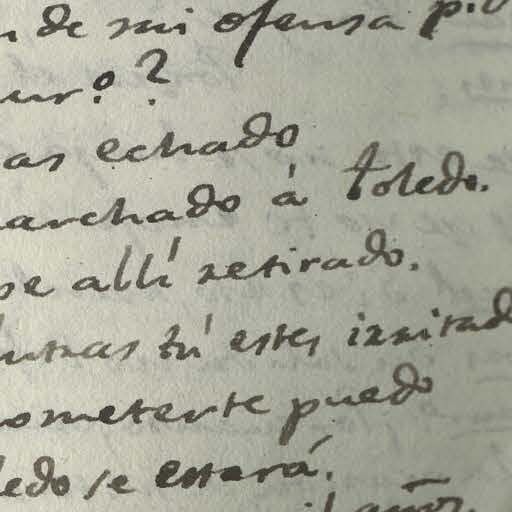 de mi ofensa
echado
archado á toledo.
se allí retirado.
tú estes irritad
ometerte puedo
ledo se estará.